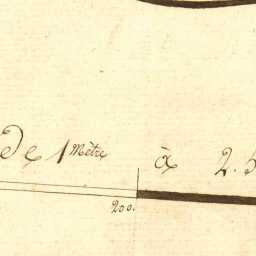 de 1 Mètre à 2.5
200.